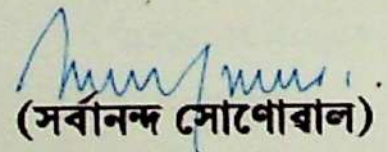 (সৰ্বানন্দ সোণোৱাল)